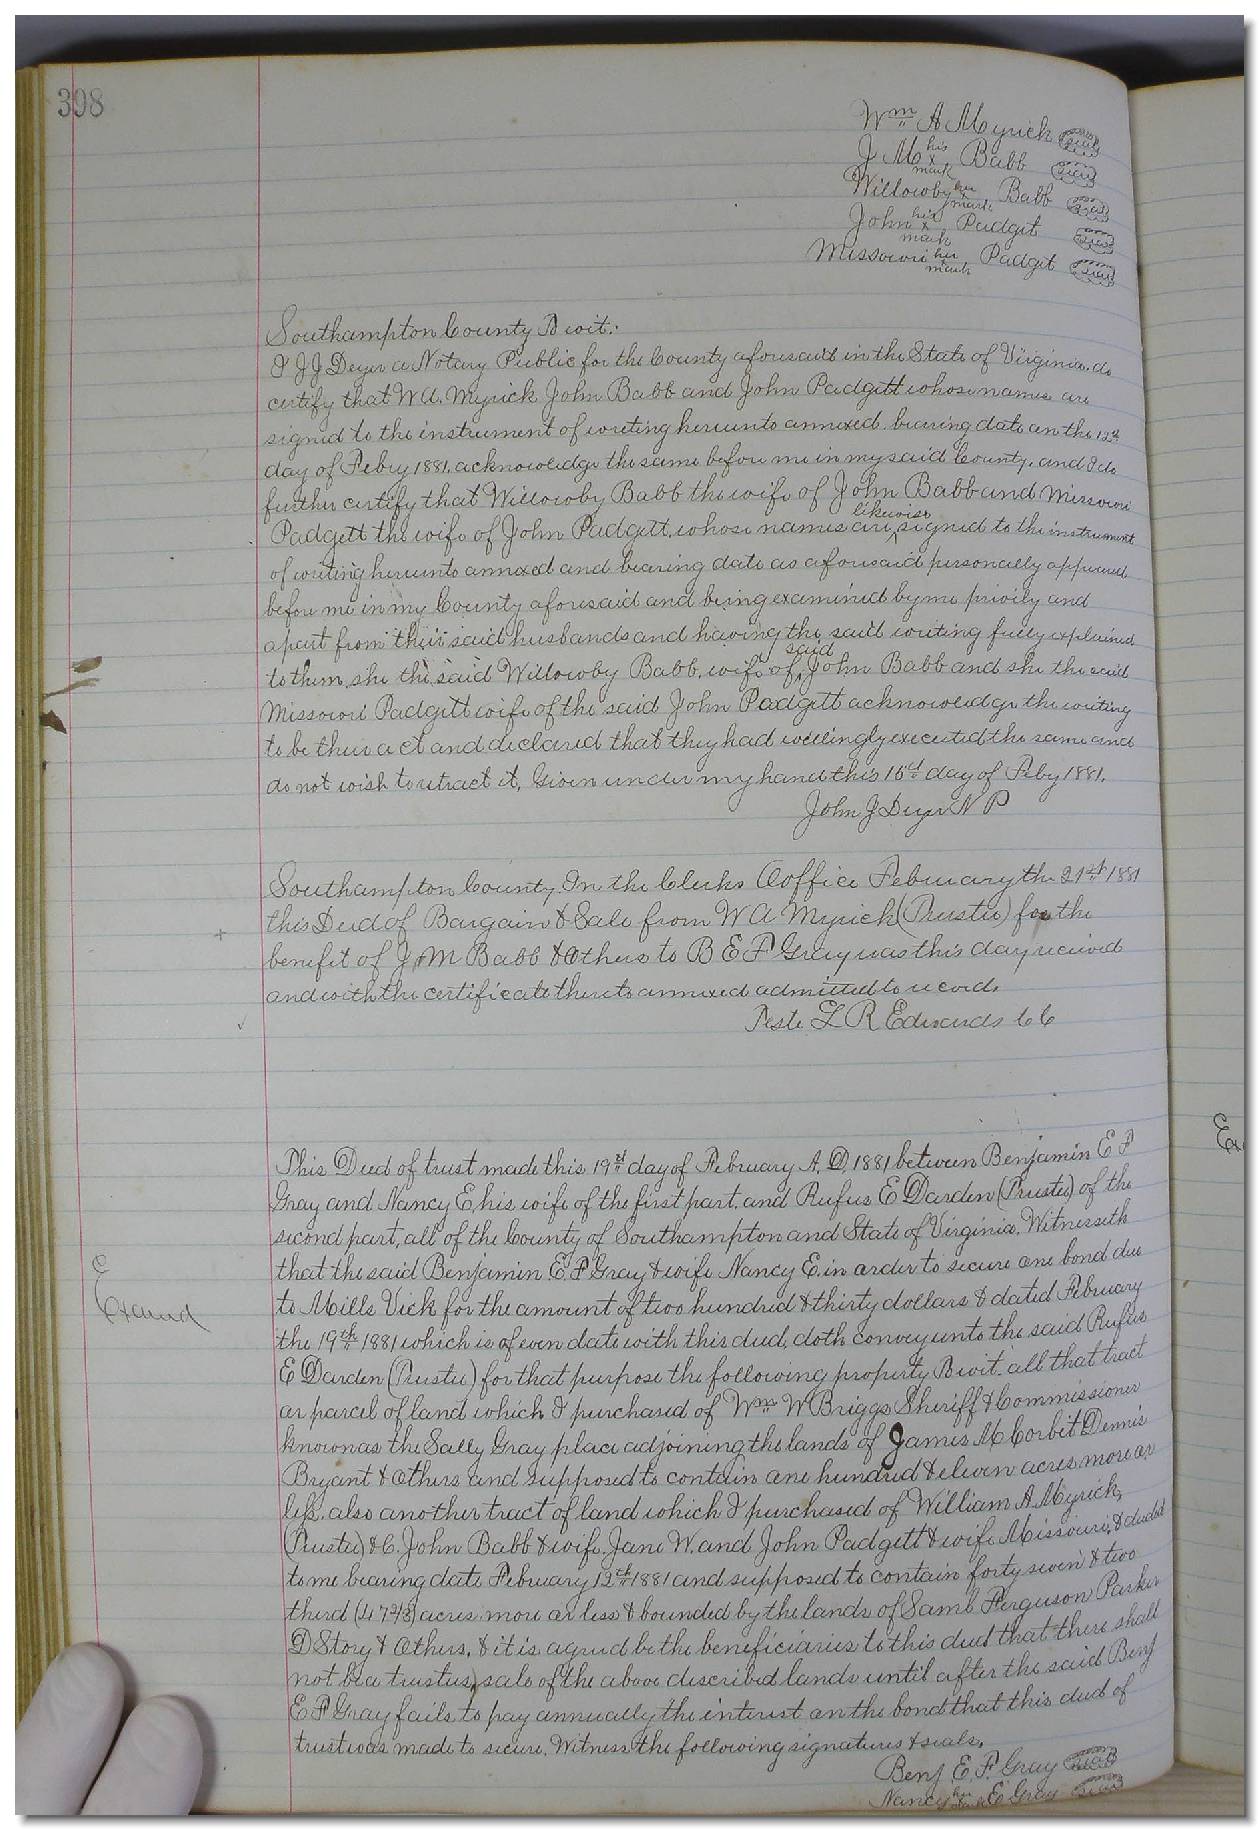 398
Wm A Myrick seal
J M his x mark Babb seal
Willowby her x mark Babb seal
John his x mark Padgit seal
Missouri her x mark Padgit seal
Southampton County Towit:
I J J Deyer a Notary Public for the County aforesaid in the State of Virginia. do
certify that W A. Myrick John Babb and John Padgett whose names are
signed to the instrument of writing hereunto annexed. bearing date on the 12th
day of Febry 1881. acknowledge the same before me in my said County. and I do
further certify that Willowby Babb the wife of John Babb and Missouri
Padgett the wife of John Padgett, whose names are likewise signed to the instrument
of writing hereunto annexed and bearing date as aforesaid personally appeared
before me in my County aforesaid and being examined by me privily and
apart from their said husbands and having the said writing fully explained
to them she the said Willowby Babb, wife of said John Babb and she the said
Missouri Padgett wife of the said John Padgett acknowledge the writing
to be their act and declared that they had willingly executed the same and
do not wish to retract it, Given under my hand this 15th day of Feby 1881.
John J Deyer N P
Southampton County. In the Clerks Ooffice February the 21st 1881
this Deed of Bargain & Sale from W A Myrick (Trustee) for the
benefit of J M Babb & Others to B E F Gray was this day received
and with the certificate thereto annexed admitted to record.
Teste L R Edwards CC
E
Examd
This Deed of trust made this 19th day of February A. D. 1881 between Benjamin E F
Gray and Nancy E, his wife of the first part, and Rufus E Darden (Trustee) of the
second part, all of the County of Southampton and State of Virginia. Witnesseth
that the said Benjamin E. F Gray & wife Nancy E. in order to secure one bond due
to Mills Vick for the amount of two hundred & thirty dollars & dated February
the 19th 1881 which is of even date with this deed, doth convey unto the said Rufus
E Darden (Trustee) for that purpose the following property Towit. all that tract
or parcel of land which I purchased of Wm W Briggs Sheriff & Commissioner
known as the Sally Gray place adjoining the lands of James M Corbit Dennis
Bryant & Others and supposed to contain one hundred & eleven acres more or
less. also another tract of land which I purchased of William A. Myrick,
(Trustee) & C. John Babb & wife, Jane W. and John Padgett & wife Missouri, & deeded
to me bearing date February 12th 1881 and supposed to contain forty seven & two
third (47 2/3) acres more or less & bounded by the lands of Saml Ferguson Parker
D Story & Others, & it is agreed be the beneficiaries to this deed that there shall
not be a trustees sale of the above described lands until after the said Benj
E F Gray fails to pay annually the interest on the bond that this deed of
trust was made to secure. Witness the following signatures & seals.
Benj E. F. Gray seal
Nancy her x mark E Gray seal